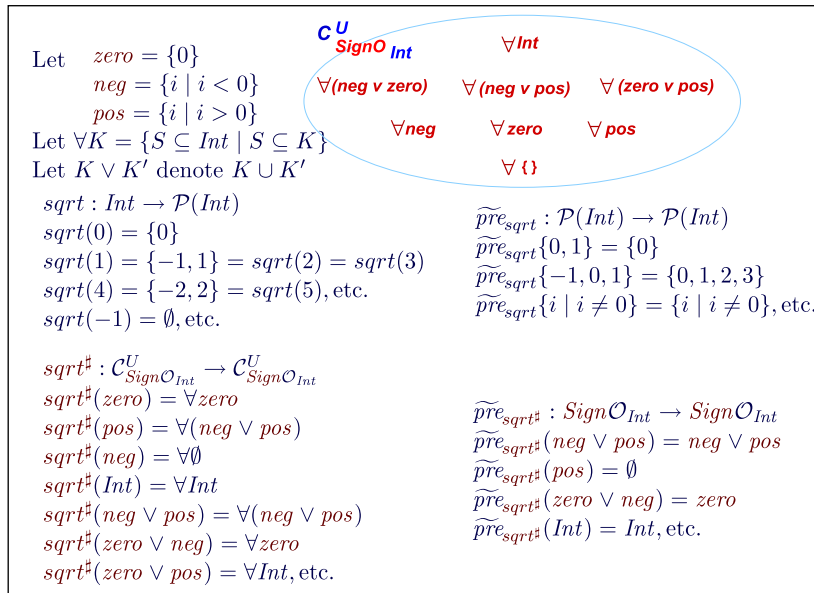 Let zero = {0}
neg = {i | i < 0}
pos = {i | i > 0}
Let ∀K = {S ⊆ Int | S ⊆ K}
Let K ∨ K′ denote K ∪ K′
C^U_SignO_Int
∀Int
∀(neg v zero) ∀(neg v pos) ∀(zero v pos)
∀neg ∀zero ∀pos
∀{}
sqrt : Int → 𝒫(Int)
sqrt(0) = {0}
sqrt(1) = {−1, 1} = sqrt(2) = sqrt(3)
sqrt(4) = {−2, 2} = sqrt(5), etc.
sqrt(−1) = ∅, etc.
p͠re_sqrt : 𝒫(Int) → 𝒫(Int)
p͠re_sqrt{0, 1} = {0}
p͠re_sqrt{−1, 0, 1} = {0, 1, 2, 3}
p͠re_sqrt{i | i ≠ 0} = {i | i ≠ 0}, etc.
sqrt♯ : 𝒞^U_Sign𝒪_Int → 𝒞^U_Sign𝒪_Int
sqrt♯(zero) = ∀zero
sqrt♯(pos) = ∀(neg ∨ pos)
sqrt♯(neg) = ∀∅
sqrt♯(Int) = ∀Int
sqrt♯(neg ∨ pos) = ∀(neg ∨ pos)
sqrt♯(zero ∨ neg) = ∀zero
sqrt♯(zero ∨ pos) = ∀Int, etc.
p͠re_sqrt♯ : Sign𝒪_Int → Sign𝒪_Int
p͠re_sqrt♯(neg ∨ pos) = neg ∨ pos
p͠re_sqrt♯(pos) = ∅
p͠re_sqrt♯(zero ∨ neg) = zero
p͠re_sqrt♯(Int) = Int, etc.